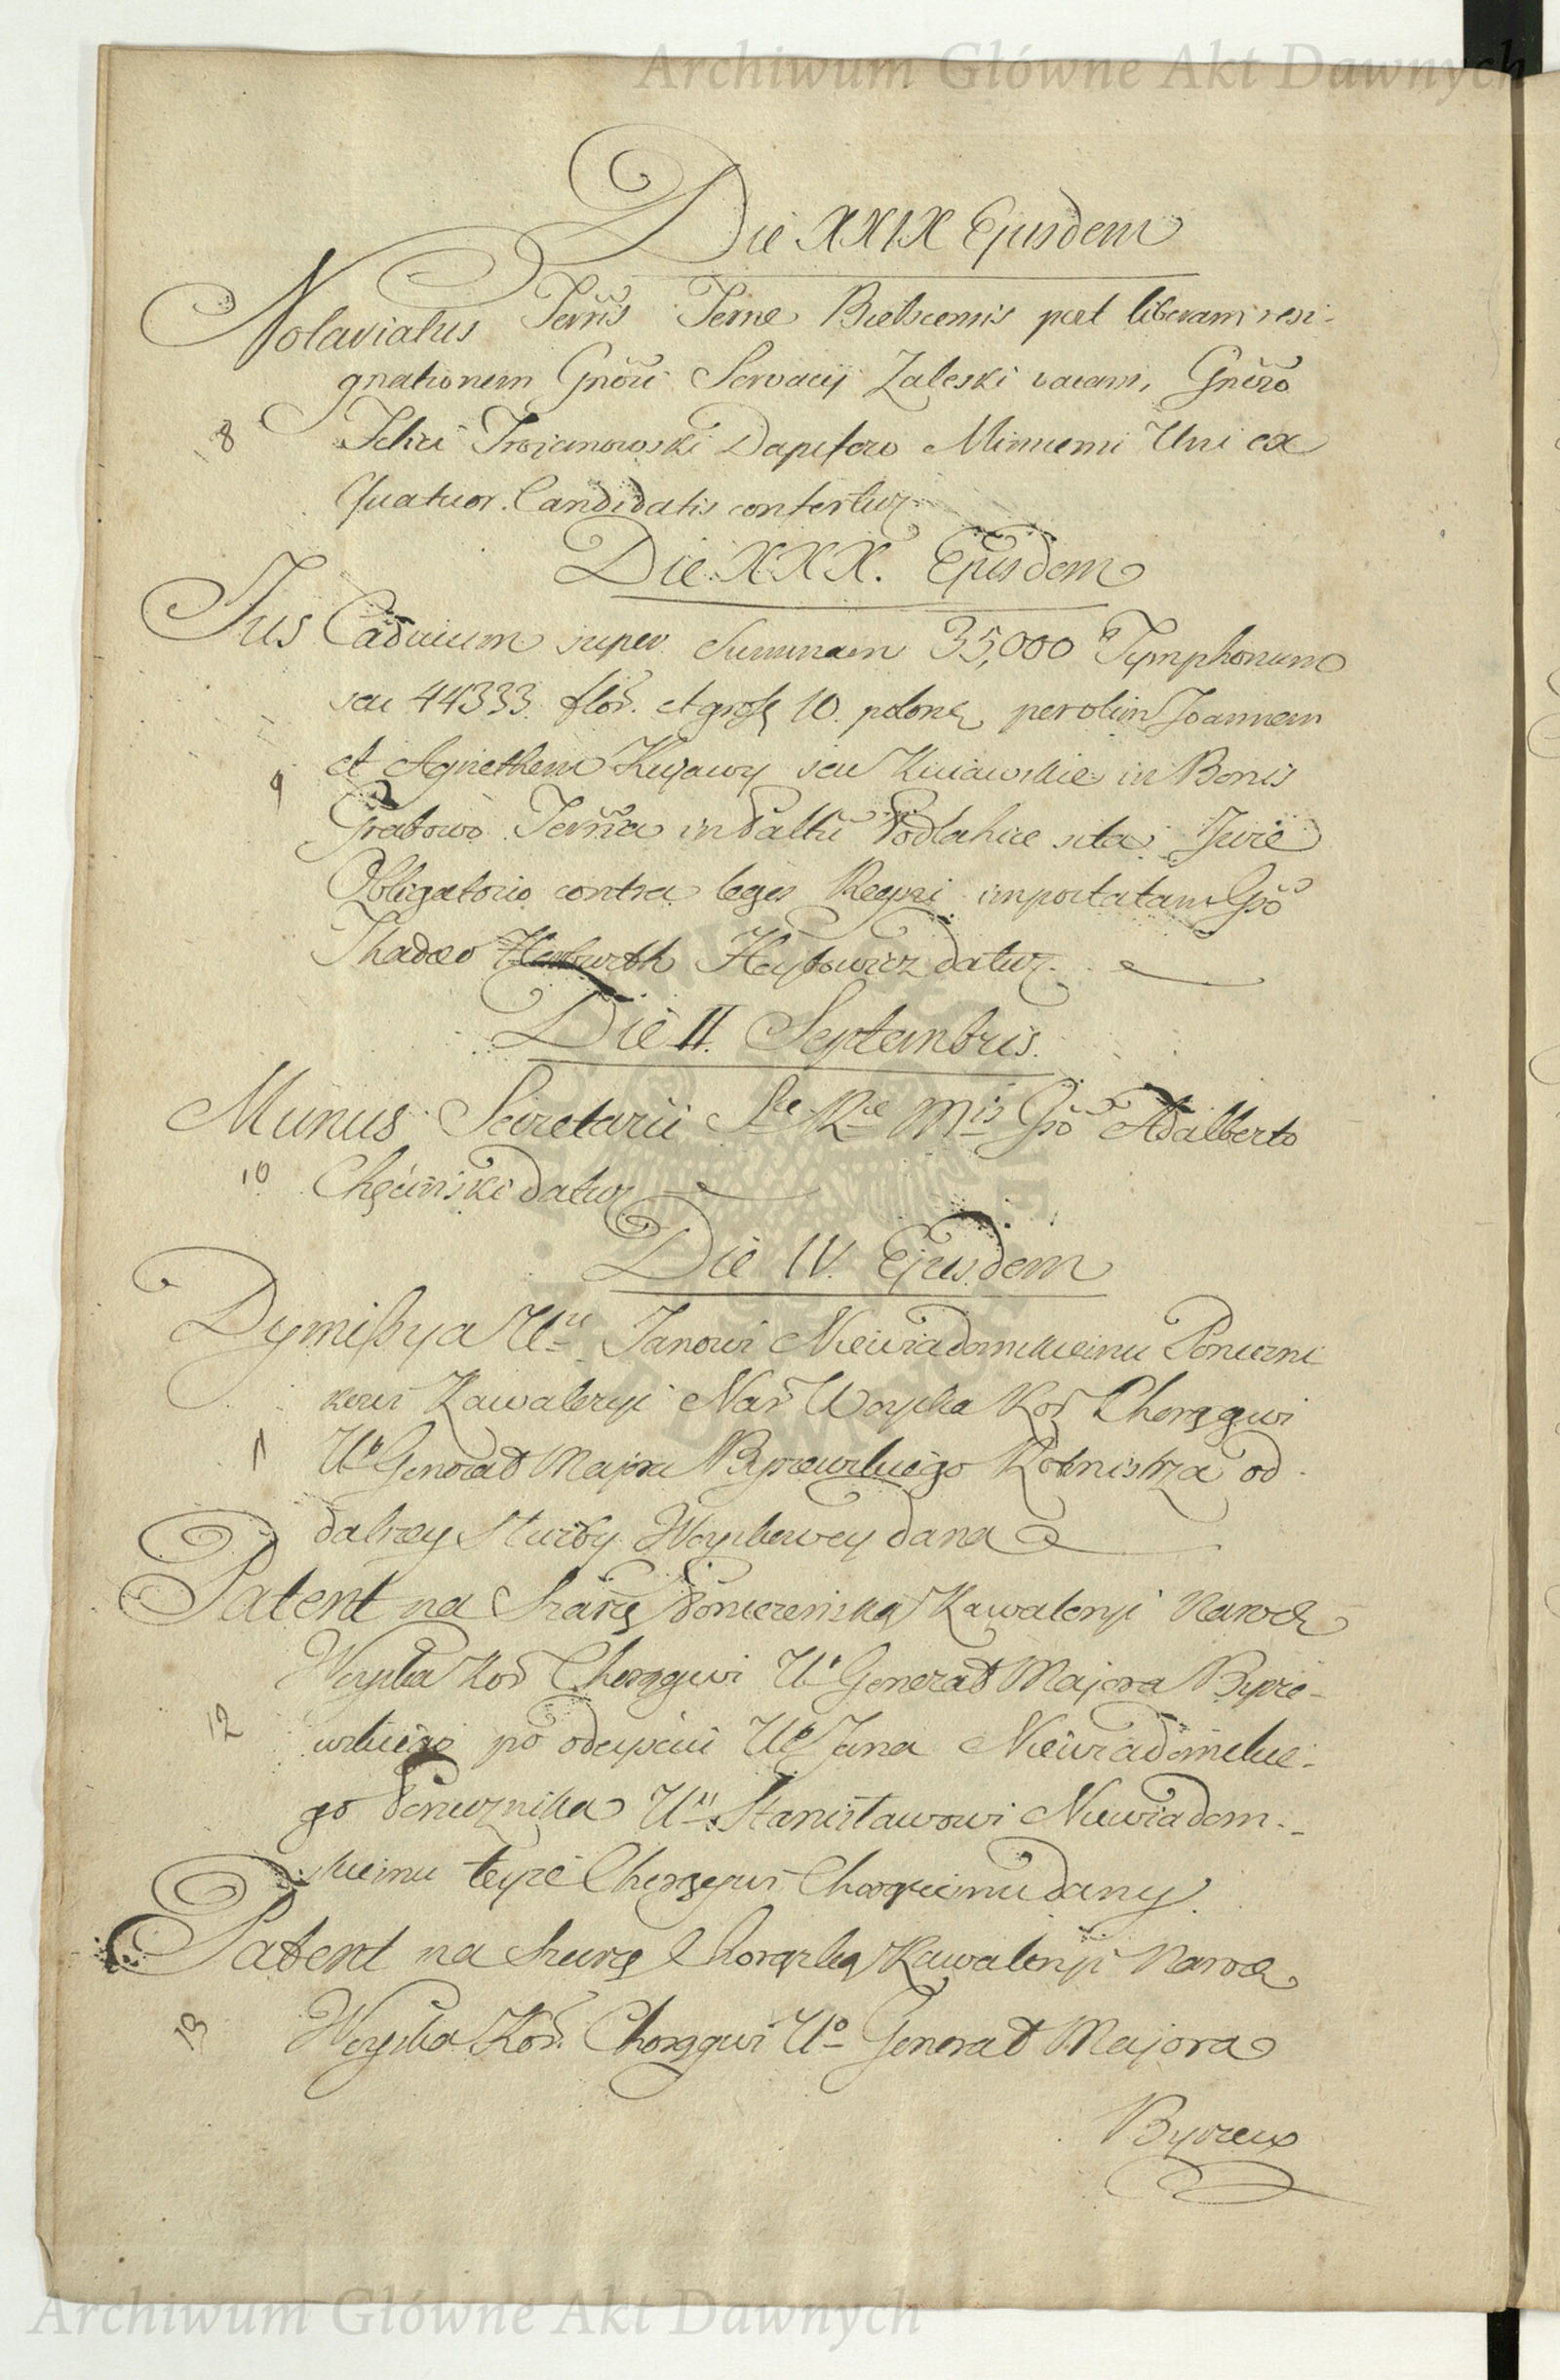 Archiwum Główne Akt Dawnych
Die XXIX Ejusdem
Notariatus Terris Terrae Bielscensis post liberam resi-
gnationem Gnosi Servacij Zaleski vacans, Gneroso
8 Trojanowski Dapifero Mimensi Uni ex
Quatuor Candidatis confertur
Die XXX. Ejusdem
Jus Caducum super Summam 35,000 Tymphonum
seu 44333 flor. et gross 10. polon per olim Joannem
et Agnethem Kujawy seu Kuiawskie in Bonis
9 Grabowo Terra in Paltu Podlahiae sita Jure
Obligatorio contra leges Regni importatam Gso
Thadeo Heybowicz datur.
Die II. Septembris.
Munus Secretarii Sae Rae Mtis Gso Adalberto
10 Chęciński datur
Die IV. Ejusdem
Dymissya Uru Janowi Niewiadomskiemu Poruczni
kowi Kawaleryi Nar Woyska Kor Chorągwi
11 Uo Generał Majora Byszewskiego Rotmistrza od
dalszey służby Woyskowey dana
Patent na Szarżę Poruczeńską Kawaleryi Narod
Woyska Kor Chorągwi Uo Generał Majora Bysze-
12 wskiego po odeyściu Uo Jana Niewiadomskie-
go Porucznika Uru Stanisławowi Niewiadom-
skiemu teyże Chorągwi Chorążemu dany.
Patent na Szarżę Chorązką Kawaleryi Narod
13 Woyska Kor. Chorągwi Uo Generał Majora
Byszews
Archiwum Główne Akt Dawnych